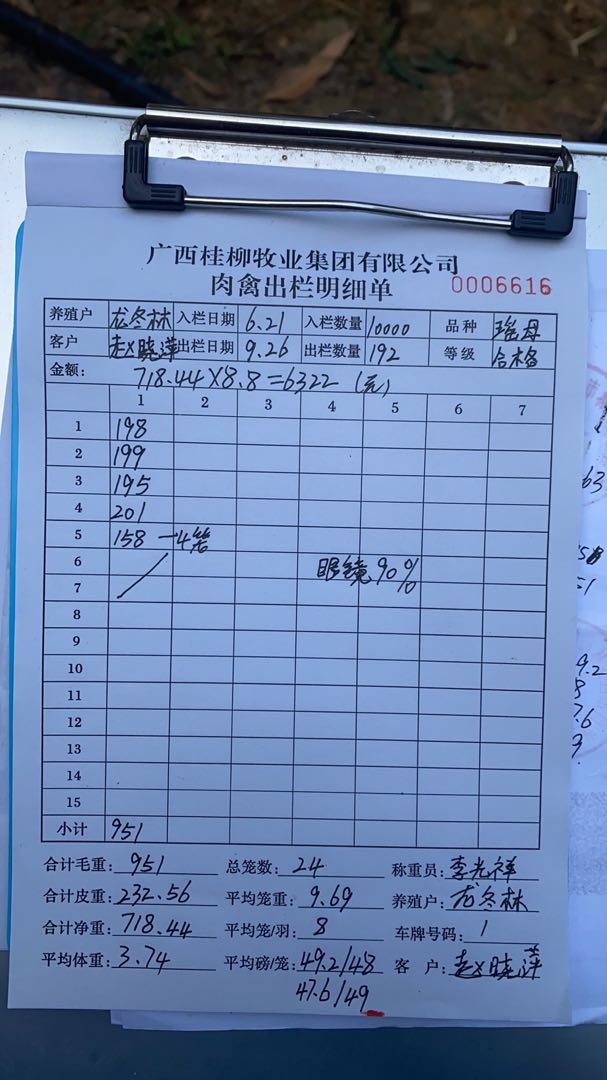 广西桂柳牧业集团有限公司
肉禽出栏明细单 0006616
养殖户 龙冬林 入栏日期 6.21 入栏数量 10000 品种 瑶母
客户 赵晓萍 出栏日期 9.26 出栏数量 192 等级 合格
金额: 718.44×8.8=6322 (元)
1 2 3 4 5 6 7
1 198
2 199
3 195
4 201
5 158 一4笼
6 眼镜90%
7
8
9
10
11
12
13
14
15
小计 951
合计毛重: 951 总笼数: 24 称重员: 李光祥
合计皮重: 232.56 平均笼重: 9.69 养殖户: 龙冬林
合计净重: 718.44 平均笼/羽: 8 车牌号码: 1
平均体重: 3.74 平均磅/笼: 49.2/48 客户: 赵晓萍
47.6/49